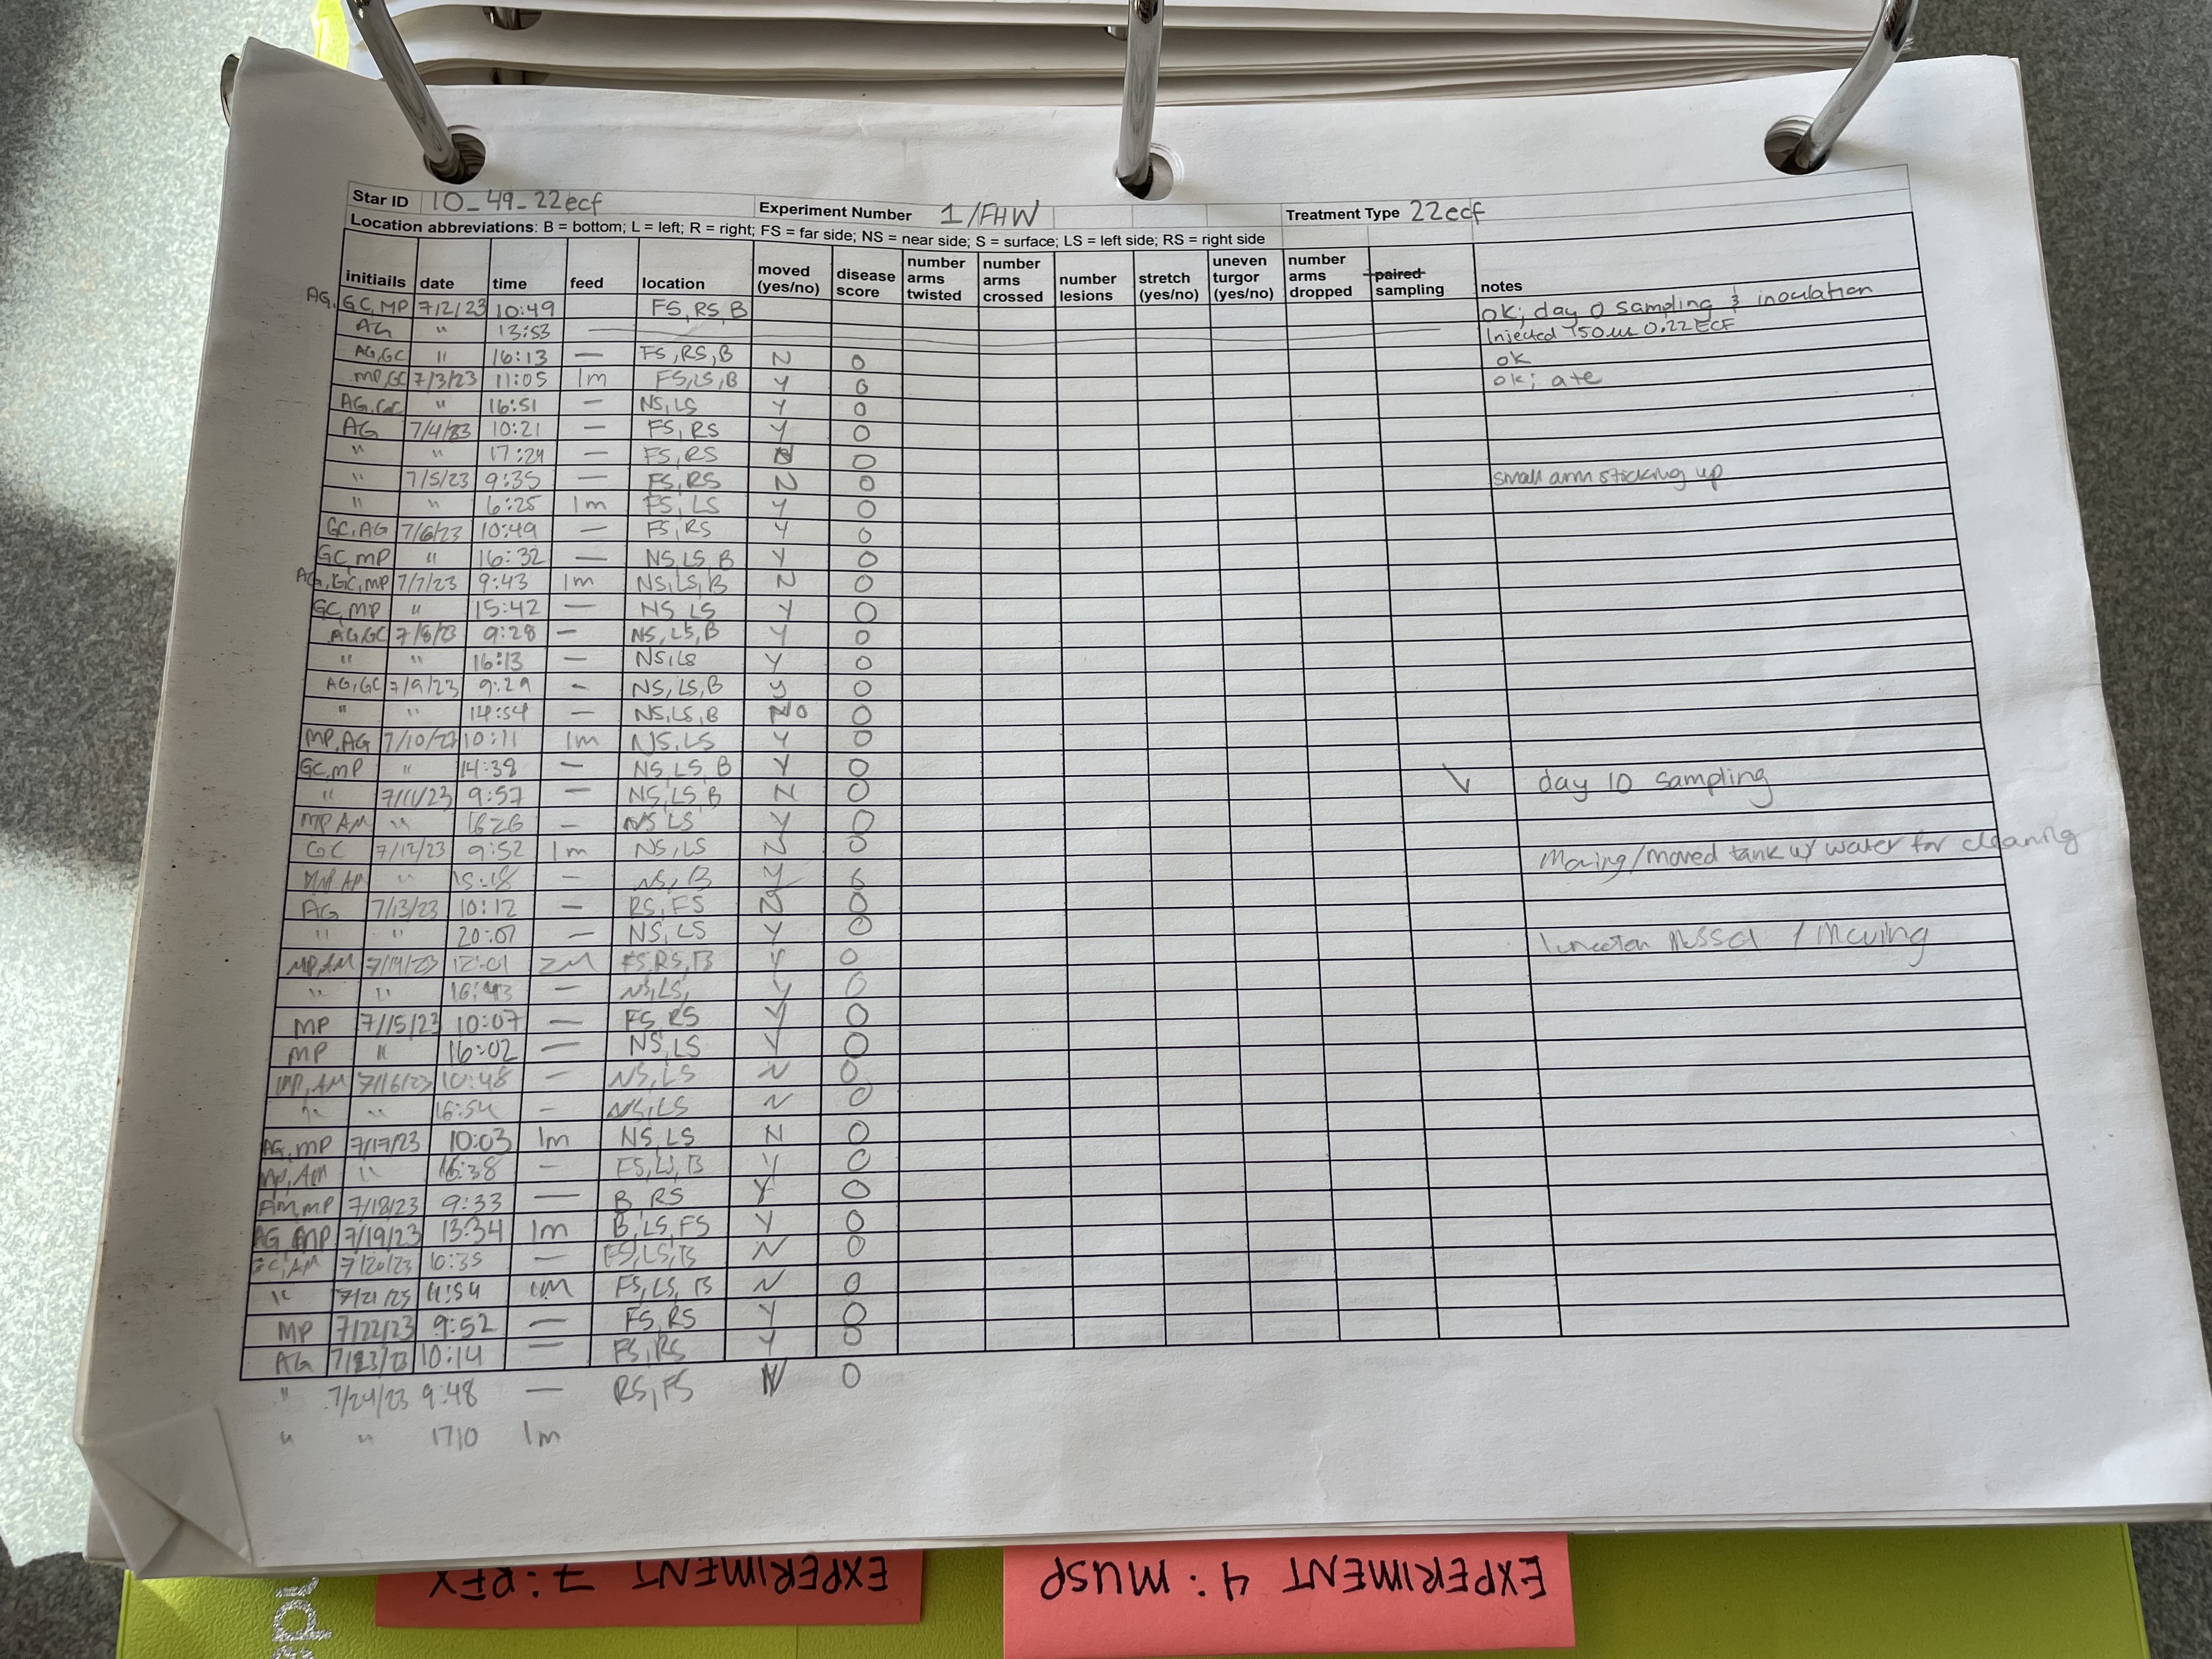 Star ID 10_49_22ecf Experiment Number 1/FHW Treatment Type 22ecf
Location abbreviations: B = bottom; L = left; R = right; FS = far side; NS = near side; S = surface; LS = left side; RS = right side
initiails date time feed location moved (yes/no) disease score number arms twisted number arms crossed number lesions stretch (yes/no) uneven turgor (yes/no) number arms dropped paired sampling notes
AG, GC, MP 7/2/23 10:49 FS, RS, B ok; day 0 sampling & inoculation
AG " 13:53 — Injected 750 0.22 ECF
AG, GC " 16:13 — FS, RS, B N 0 ok
MP, GC 7/3/23 11:05 1m FS, LS, B Y 0 ok; ate
AG, GC " 16:51 — NS, LS Y 0
AG 7/4/23 10:21 — FS, RS Y 0
" " 17:24 — FS, RS 0
" 7/5/23 9:35 — FS, RS N 0 small arm sticking up
" " 6:25 1m FS, LS Y 0
GC, AG 7/6/23 10:49 — FS, RS Y 0
GC, MP " 16:32 — NS, LS, B Y 0
AG, GC, MP 7/7/23 9:43 1m NS, LS, B N 0
GC, MP " 15:42 — NS, LS Y 0
AG, GC 7/8/23 9:28 — NS, LS, B Y 0
" " 16:13 — NS, LS Y 0
AG, GC 7/9/23 9:29 — NS, LS, B Y 0
" " 14:54 — NS, LS, B No 0
MP, AG 7/10/23 10:11 1m NS, LS Y 0
GC, MP " 14:38 — NS, LS, B Y 0
" 7/11/23 9:57 — NS, LS, B N 0 \/ day 10 sampling
MP AM " — NS LS Y 0
GC 7/12/23 9:52 1m NS, LS N 0 Moving/moved tank w/ water for cleaning
MP, AM " 15:18 — NS, B Y
AG 7/13/23 10:12 — RS, FS N 0
" " 20:07 — NS, LS Y 0 / Moving
MP, AM 7/14/23 12:01 2M FS, RS, B Y 0
" " 16:43 — NS, LS, Y 0
MP 7/15/23 10:07 — FS, RS Y 0
MP " 16:02 — NS, LS Y 0
MP, AM 7/16/23 10:48 — NS, LS N 0
" " 16:54 — NS, LS N 0
AG, MP 7/17/23 10:03 1m NS, LS N 0
MP, AM " 16:38 — FS, LS, B Y 0
AM, MP 7/18/23 9:33 — B, RS Y 0
AG, MP 7/19/23 13:34 1m B, LS, FS Y 0
GC, AM 7/20/23 — FS, LS, B N 0
" FS, LS, B N 0
MP 7/22/23 9:52 — FS, RS Y 0
AG 7/23/23 10:14 — FS, RS Y 0
" 7/24/23 9:48 — RS, FS N 0
" " 1710 1m
EXPERIMENT 7: PFX EXPERIMENT 4: MUSP